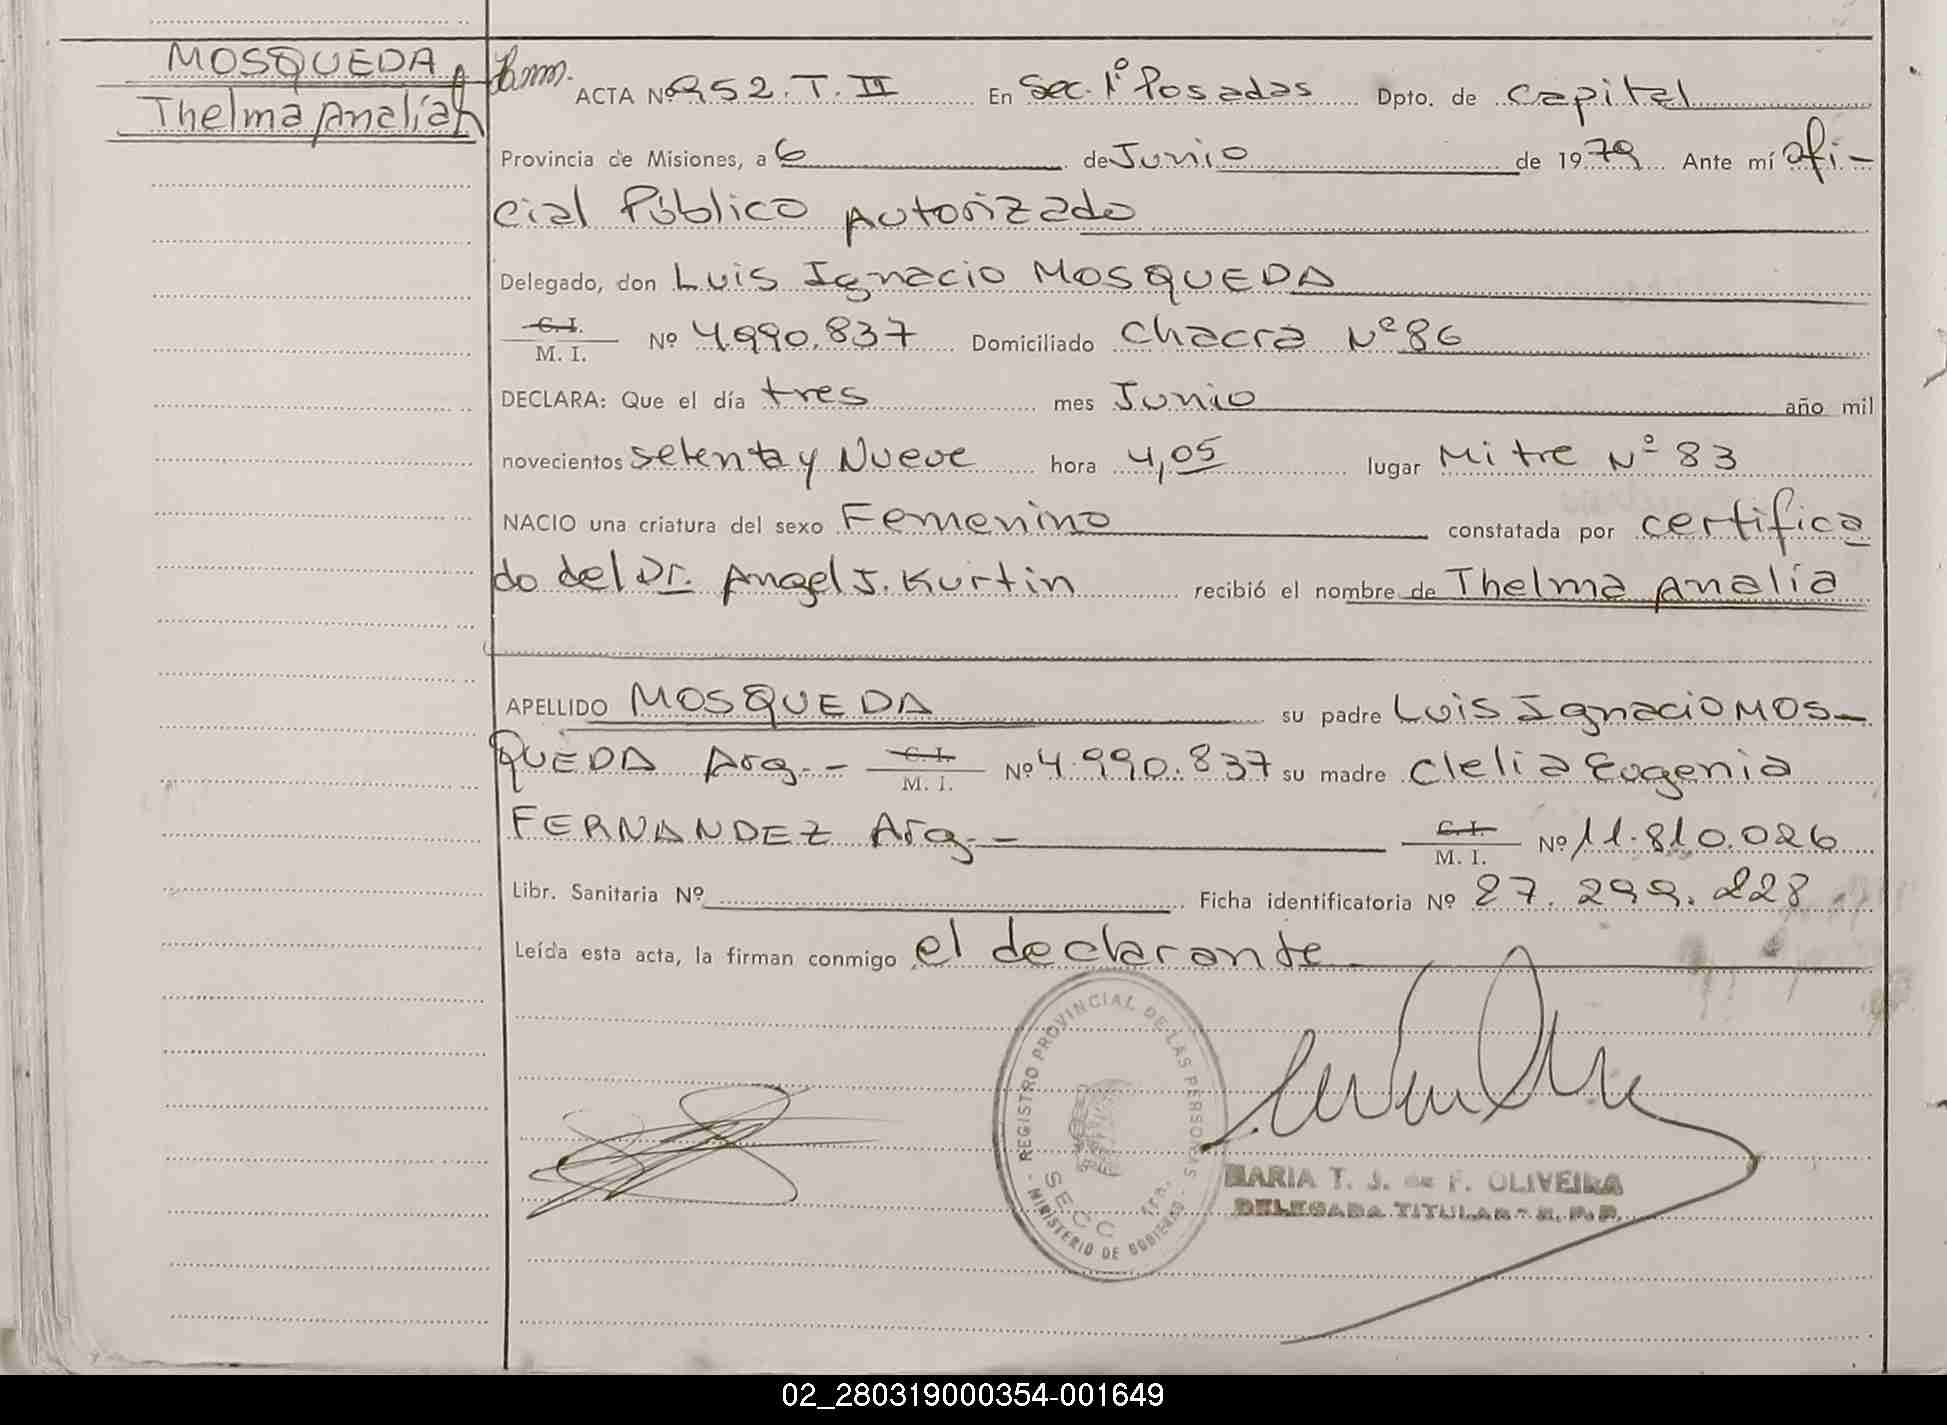 MOSQUEDA
Thelma Analía
ACTA Nº 952. T. II En Sec. 1º Posadas Dpto. de Capital
Provincia de Misiones, a 6 de Junio de 1979 Ante mí ofi-
cial Público Autorizado
Delegado, don Luis Ignacio MOSQUEDA
C.I.
M. I. Nº 4.990.837 Domiciliado Chacra Nº 86
DECLARA: Que el día tres mes Junio año mil
novecientos setenta y Nueve hora 4,05 lugar Mitre Nº 83
NACIO una criatura del sexo Femenino constatada por certifica
do del Dr. Angel J. Kurtin recibió el nombre de Thelma Analía
APELLIDO MOSQUEDA su padre Luis Ignacio MOS-
QUEDA Arg.- C.I. M. I. Nº 4.990.837 su madre Clelia Eugenia
FERNANDEZ Arg.- C.I. M. I. Nº 11.810.026
Libr. Sanitaria Nº Ficha identificatoria Nº 27.299.228
Leída esta acta, la firman conmigo el declarante
- REGISTRO PROVINCIAL DE LAS PERSONAS -
MINISTERIO DE GOBIERNO
SECC 1ra.
MARIA T. J. de F. OLIVEIRA
DELEGADA TITULAR - R. P. P.
02_280319000354-001649